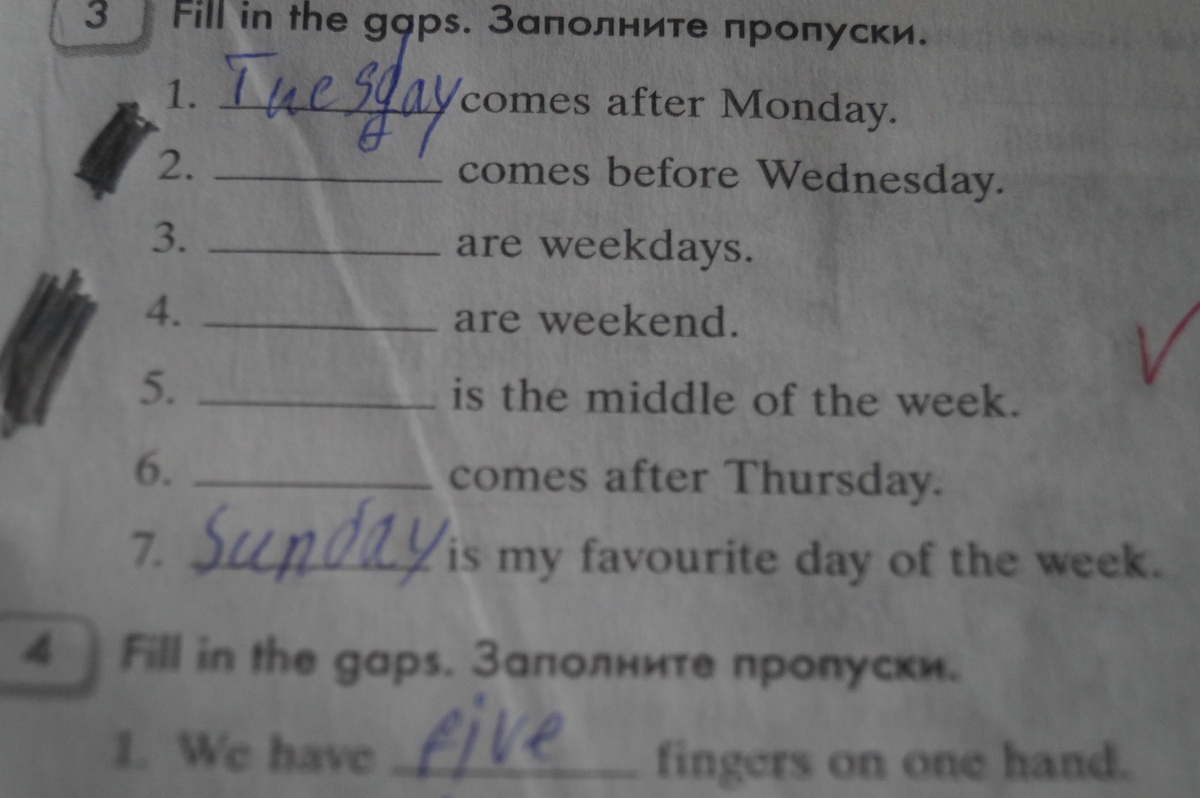 3 Fill in the gaps. Заполните пропуски.
1. Tuesday comes after Monday.
2. __________ comes before Wednesday.
3. __________ are weekdays.
4. __________ are weekend.
5. __________ is the middle of the week.
6. __________ comes after Thursday.
7. Sunday is my favourite day of the week.
4 Fill in the gaps. Заполните пропуски.
1. We have five fingers on one hand.